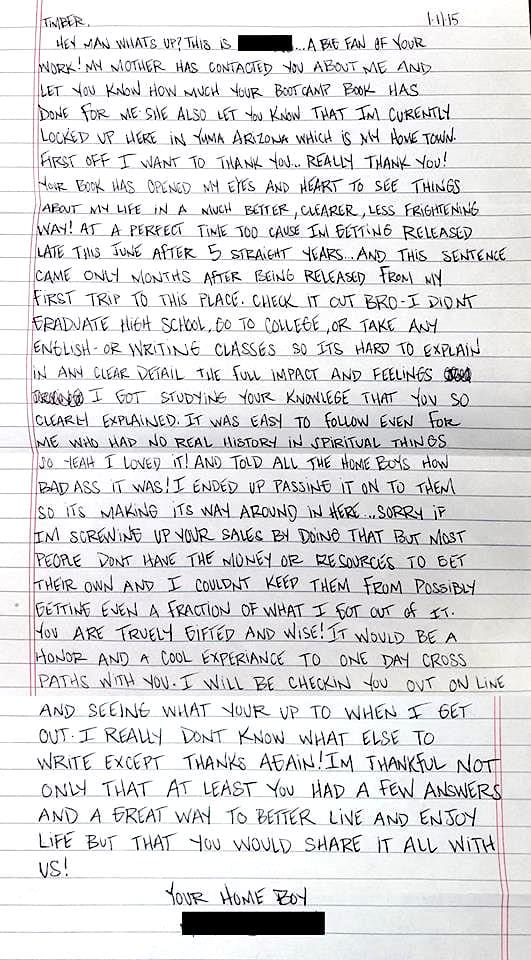 TIMBER, 1-1-15
HEY MAN WHATS UP? THIS IS ...A BIG FAN OF YOUR
WORK! MY MOTHER HAS CONTACTED YOU ABOUT ME AND
LET YOU KNOW HOW MUCH YOUR BOOTCAMP BOOK HAS
DONE FOR ME. SHE ALSO LET YOU KNOW THAT IM CURENTLY
LOCKED UP HERE IN YUMA ARIZONA WHICH IS MY HOME TOWN.
FIRST OFF I WANT TO THANK YOU... REALLY THANK YOU!
YOUR BOOK HAS OPENED MY EYES AND HEART TO SEE THINGS
ABOUT MY LIFE IN A MUCH BETTER, CLEARER, LESS FRIGHTENING
WAY! AT A PERFECT TIME TOO CAUSE IM GETTING RELEASED
LATE THIS JUNE AFTER 5 STRAIGHT YEARS... AND THIS SENTENCE
CAME ONLY MONTHS AFTER BEING RELEASED FROM MY
FIRST TRIP TO THIS PLACE. CHECK IT OUT BRO-I DIDNT
GRADUATE HIGH SCHOOL, GO TO COLLEGE, OR TAKE ANY
ENGLISH-OR WRITING CLASSES SO ITS HARD TO EXPLAIN
IN ANY CLEAR DETAIL THE FULL IMPACT AND FEELINGS
I GOT STUDYING YOUR KNOWLEGE THAT YOU SO
CLEARLY EXPLAINED. IT WAS EASY TO FOLLOW EVEN FOR
ME WHO HAD NO REAL HISTORY IN SPIRITUAL THINGS
SO YEAH I LOVED IT! AND TOLD ALL THE HOME BOYS HOW
BAD ASS IT WAS! I ENDED UP PASSING IT ON TO THEM
SO ITS MAKING ITS WAY AROUND IN HERE... SORRY IF
IM SCREWING UP YOUR SALES BY DOING THAT BUT MOST
PEOPLE DONT HAVE THE MONEY OR RESOURCES TO GET
THEIR OWN AND I COULDNT KEEP THEM FROM POSSIBLY
GETTING EVEN A FRACTION OF WHAT I GOT OUT OF IT.
YOU ARE TRUELY GIFTED AND WISE! IT WOULD BE A
HONOR AND A COOL EXPERIANCE TO ONE DAY CROSS
PATHS WITH YOU. I WILL BE CHECKIN YOU OUT ON LINE
AND SEEING WHAT YOUR UP TO WHEN I GET
OUT. I REALLY DONT KNOW WHAT ELSE TO
WRITE EXCEPT THANKS AGAIN! IM THANKFUL NOT
ONLY THAT AT LEAST YOU HAD A FEW ANSWERS
AND A GREAT WAY TO BETTER LIVE AND ENJOY
LIFE BUT THAT YOU WOULD SHARE IT ALL WITH
US!
YOUR HOME BOY